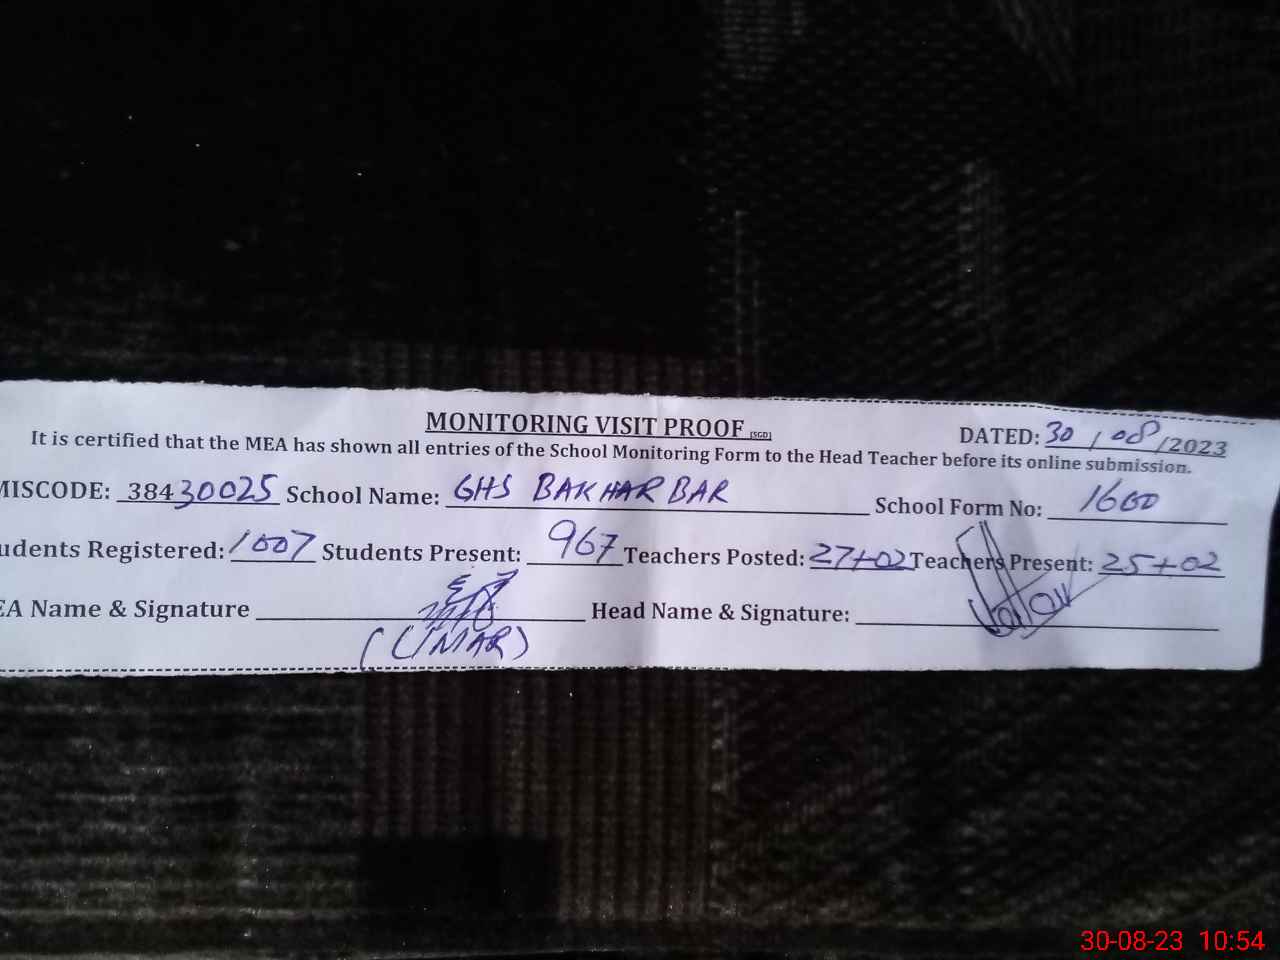 MONITORING VISIT PROOF (SGD)
DATED: 30/08/2023
It is certified that the MEA has shown all entries of the School Monitoring Form to the Head Teacher before its online submission.
MISCODE: 38430025 School Name: GHS BAKHAR BAR School Form No: 1600
udents Registered: 1007 Students Present: 967 Teachers Posted: 27+02 Teachers Present: 25+02
EA Name & Signature Head Name & Signature:
(UMAR)
30-08-23 10:54